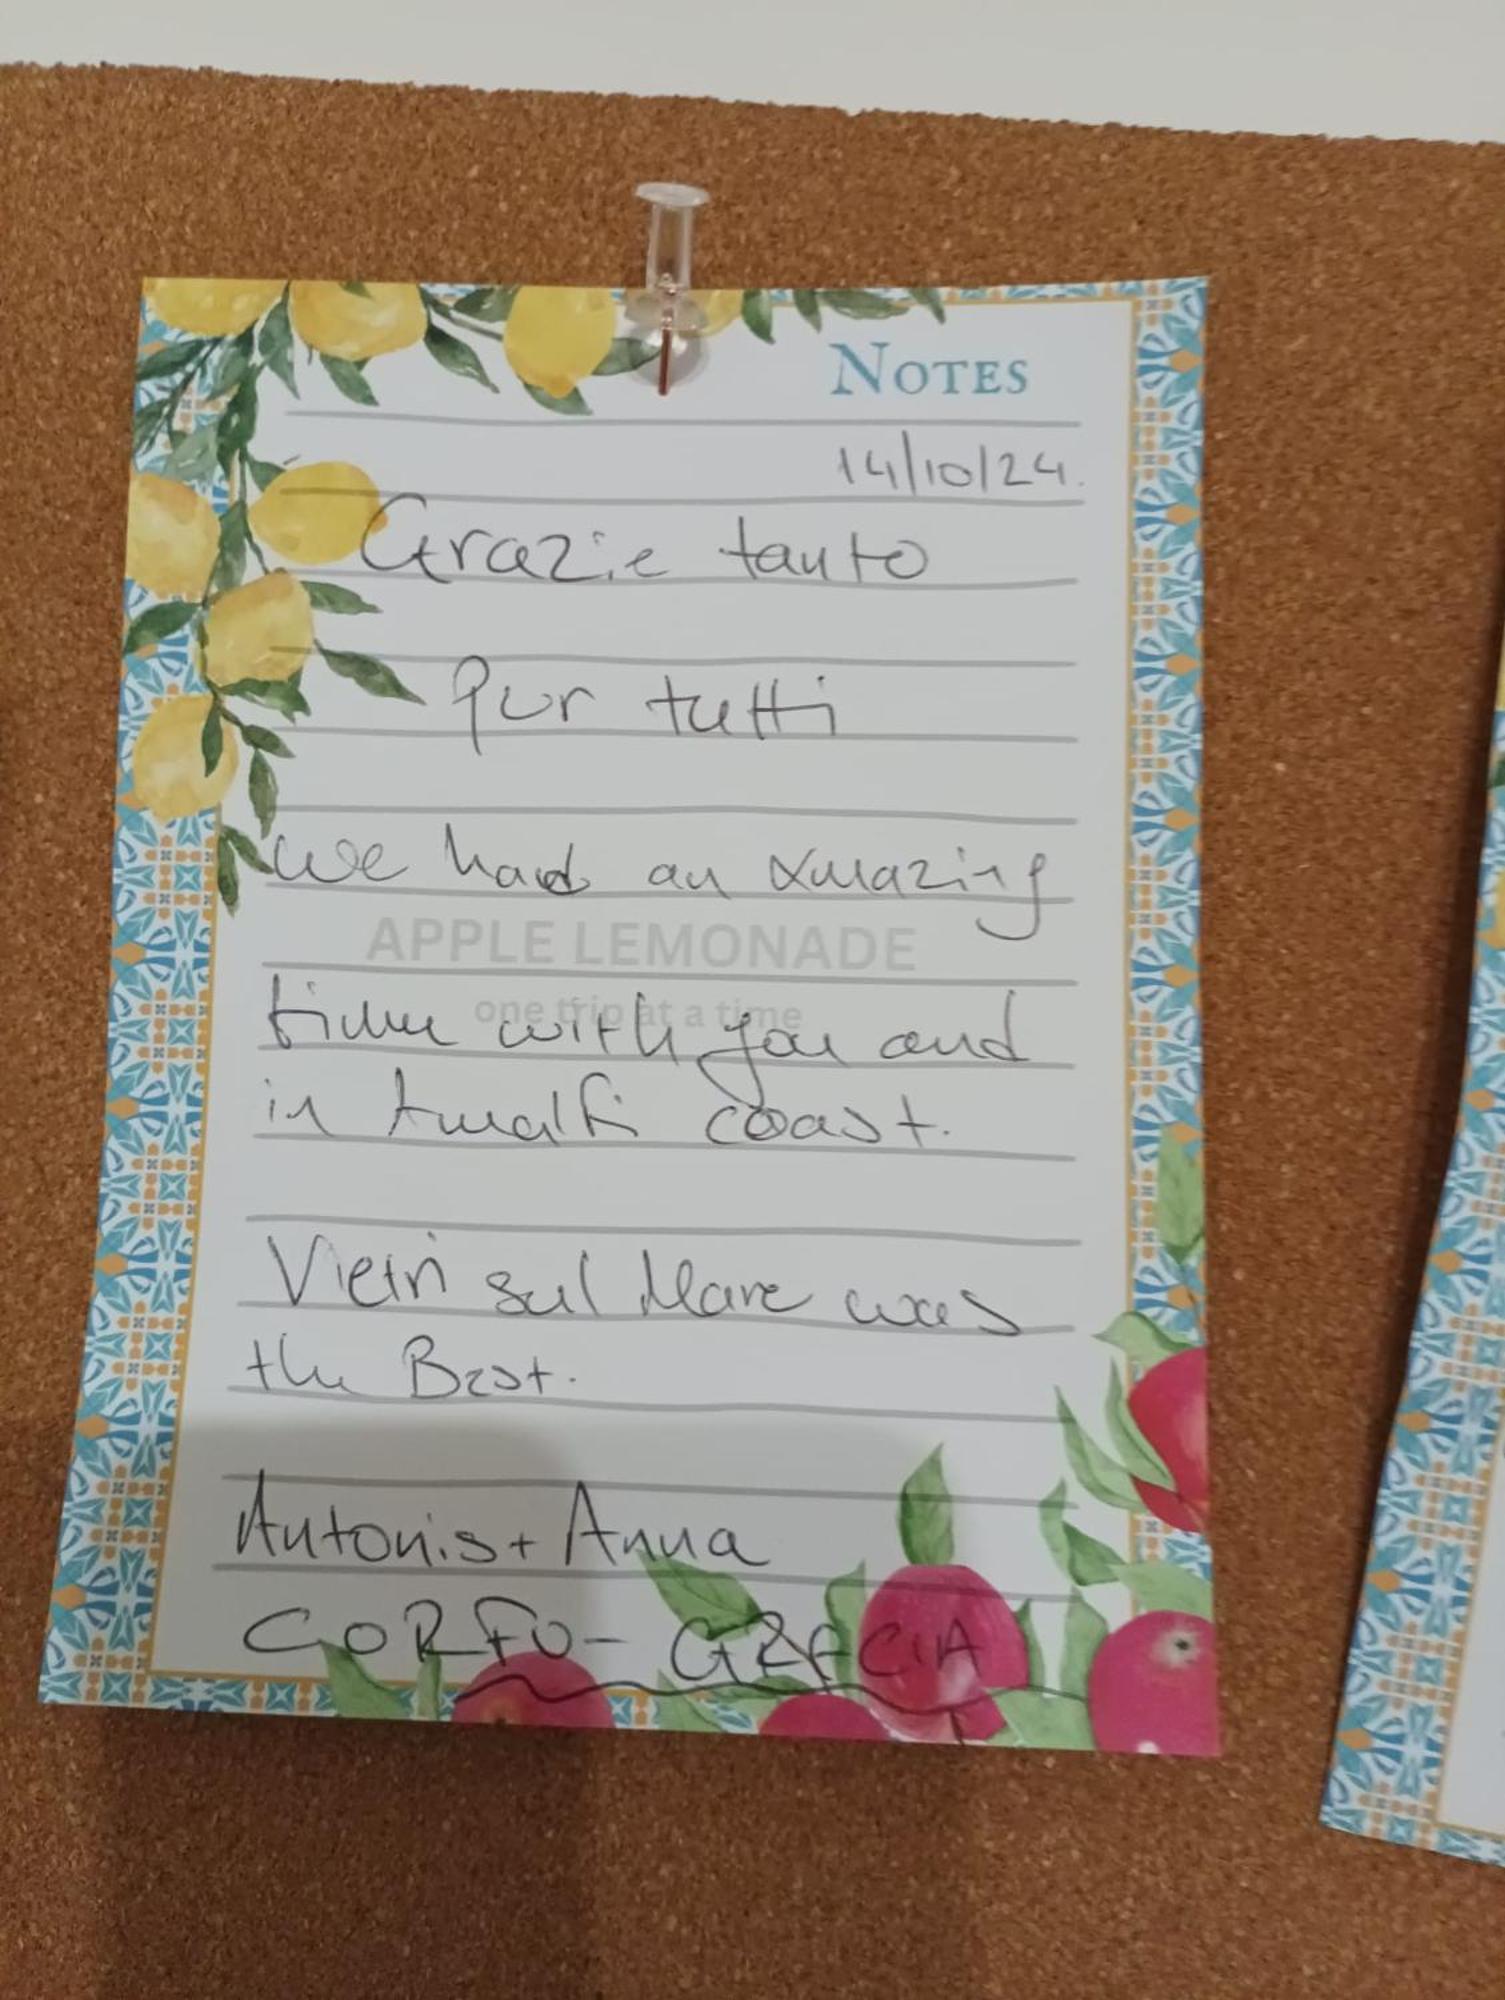 NOTES
14/10/24.
Grazie tanto
per tutti
we had an amazing
APPLE LEMONADE
one trip at a time
time with you and
in Amalfi coast.
Vietri sul Mare was
the Best.
Antonis + Anna
CORFU - GRECIA